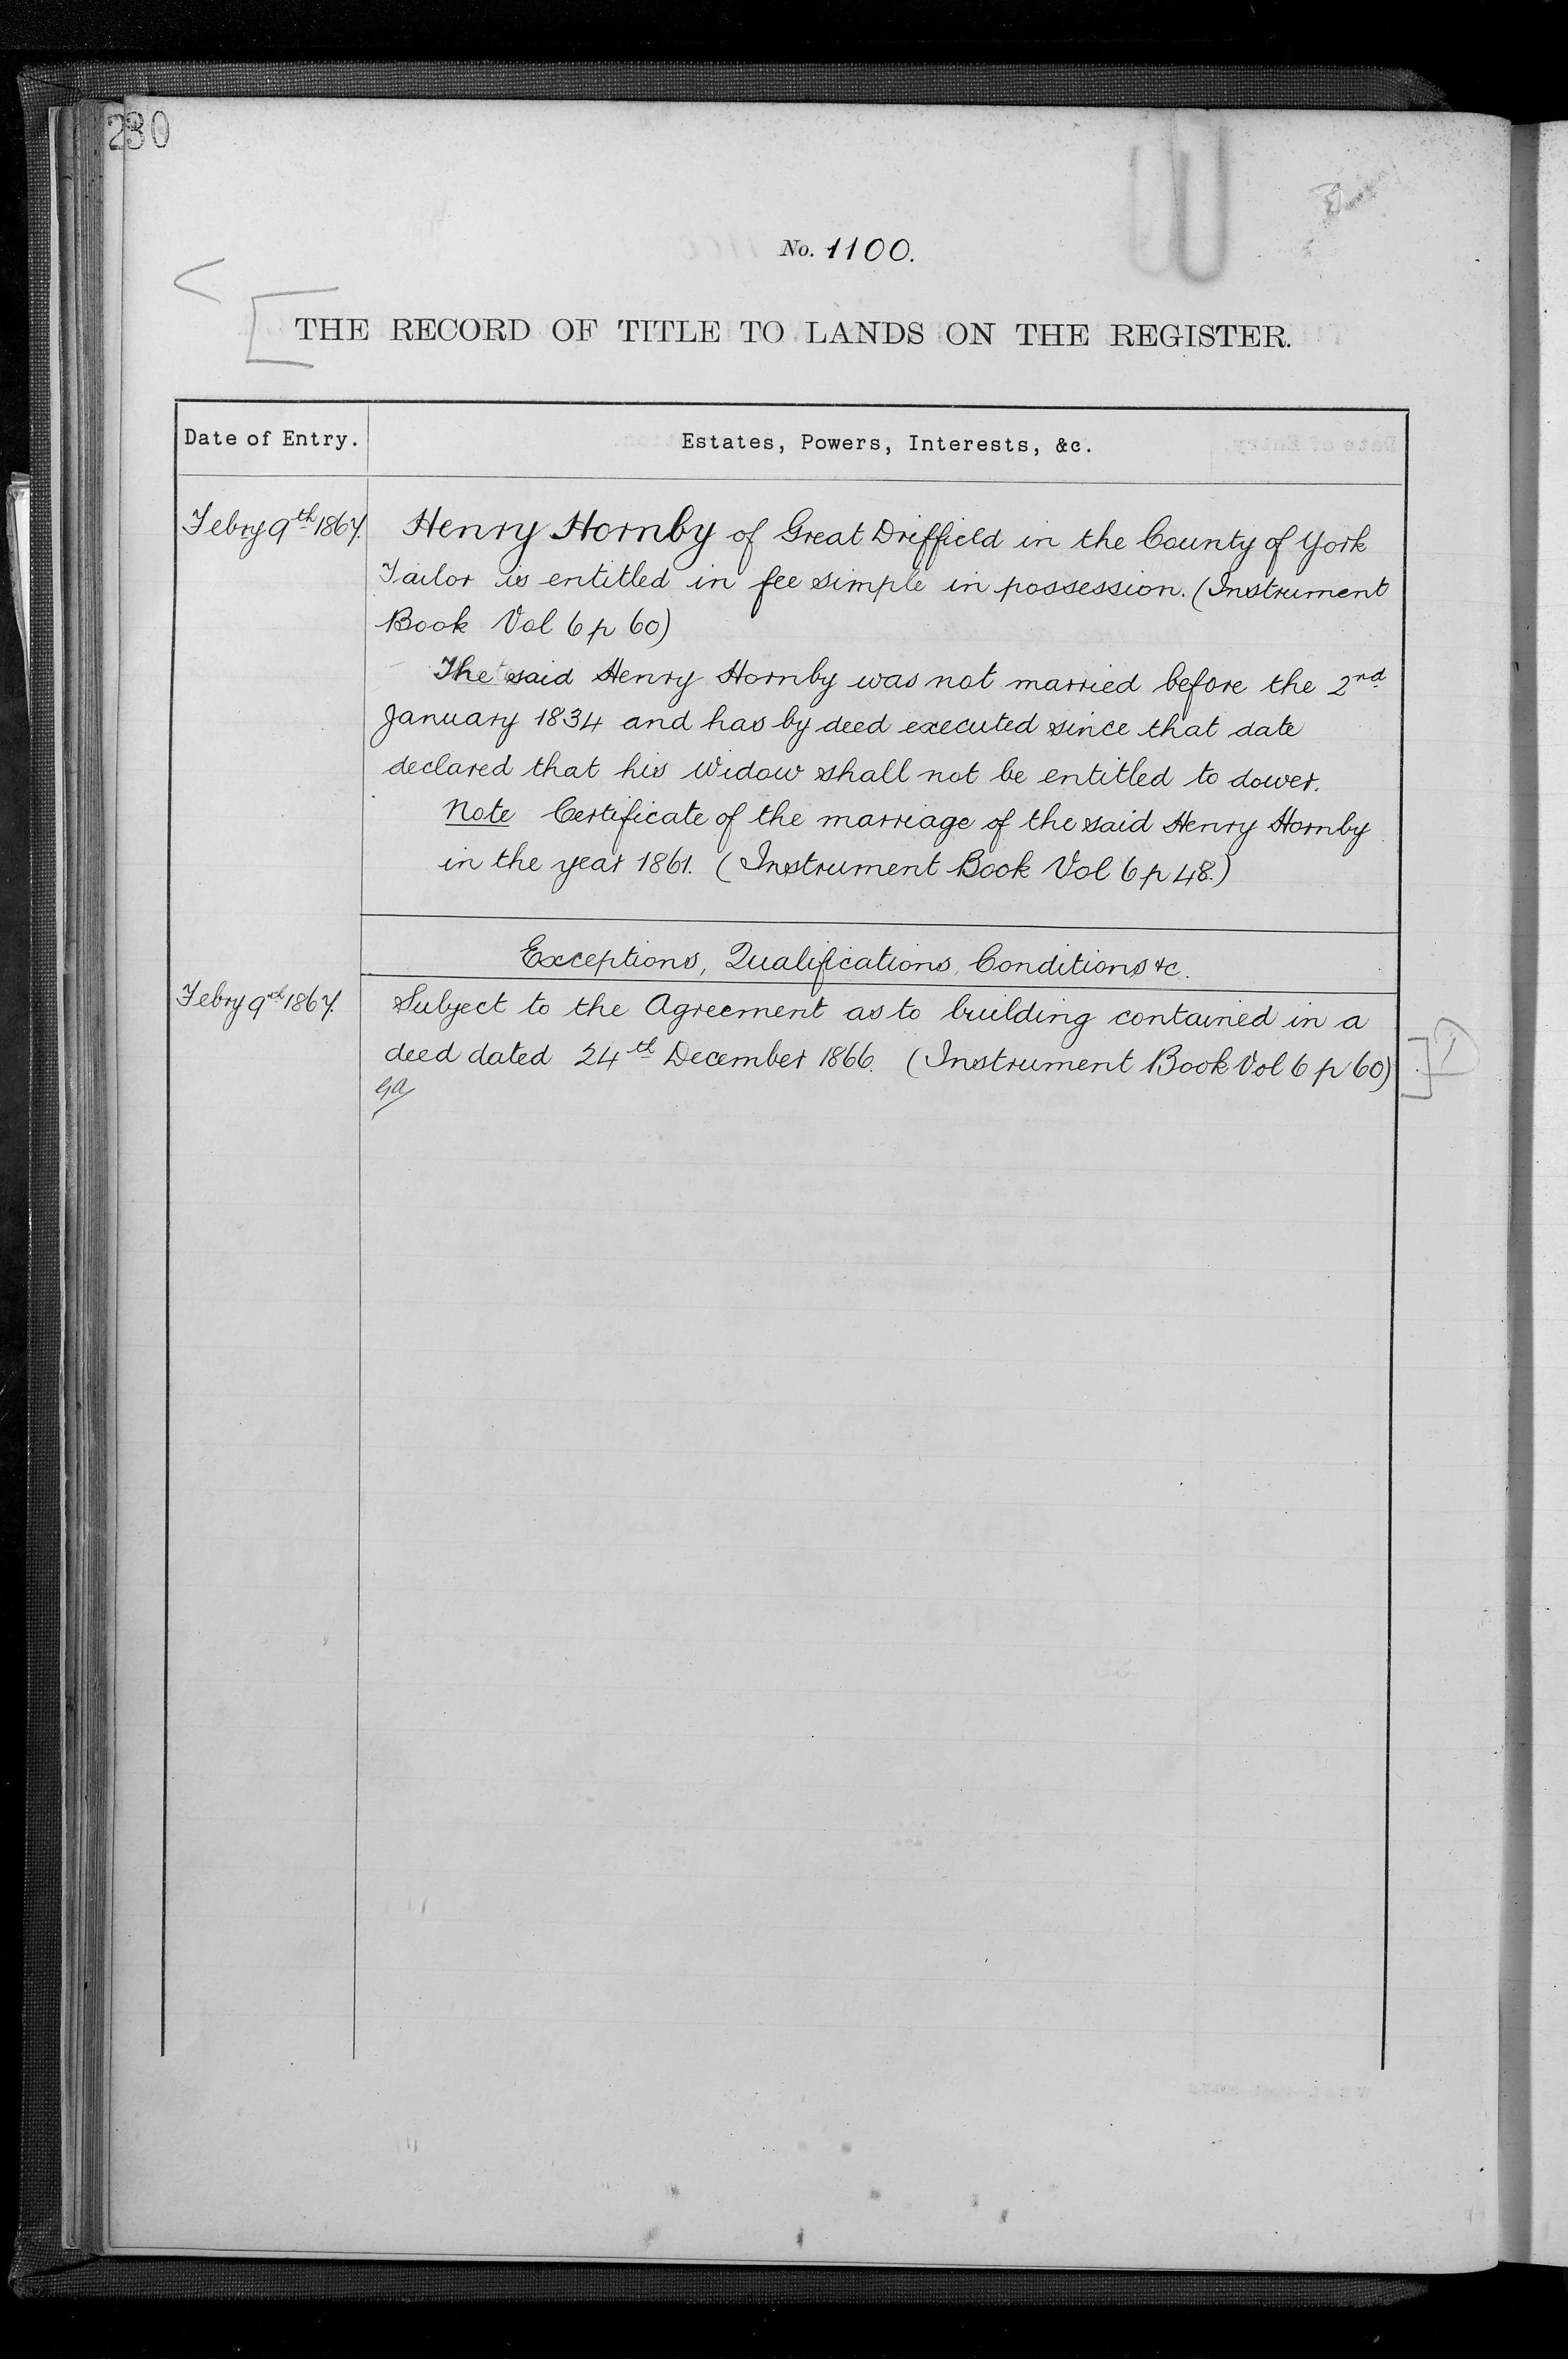 230
No. 1100.
THE RECORD OF TITLE TO LANDS ON THE REGISTER.
Date of Entry.
Estates, Powers, Interests, &c.
Febry 9th 1867.
Henry Hornby of Great Driffield in the County of York
Tailor is entitled in fee simple in possession. (Instrument
Book Vol 6 p 60)
The said Henry Hornby was not married before the 2nd
January 1834 and has by deed executed since that date
declared that his Widow shall not be entitled to dower.
Note Certificate of the marriage of the said Henry Hornby
in the year 1861. (Instrument Book Vol 6 p 48.)
Exceptions, Qualifications, Conditions &c.
Febry 9th 1867.
Subject to the Agreement as to building contained in a
deed dated 24th December 1866. (Instrument Book Vol 6 p 60)